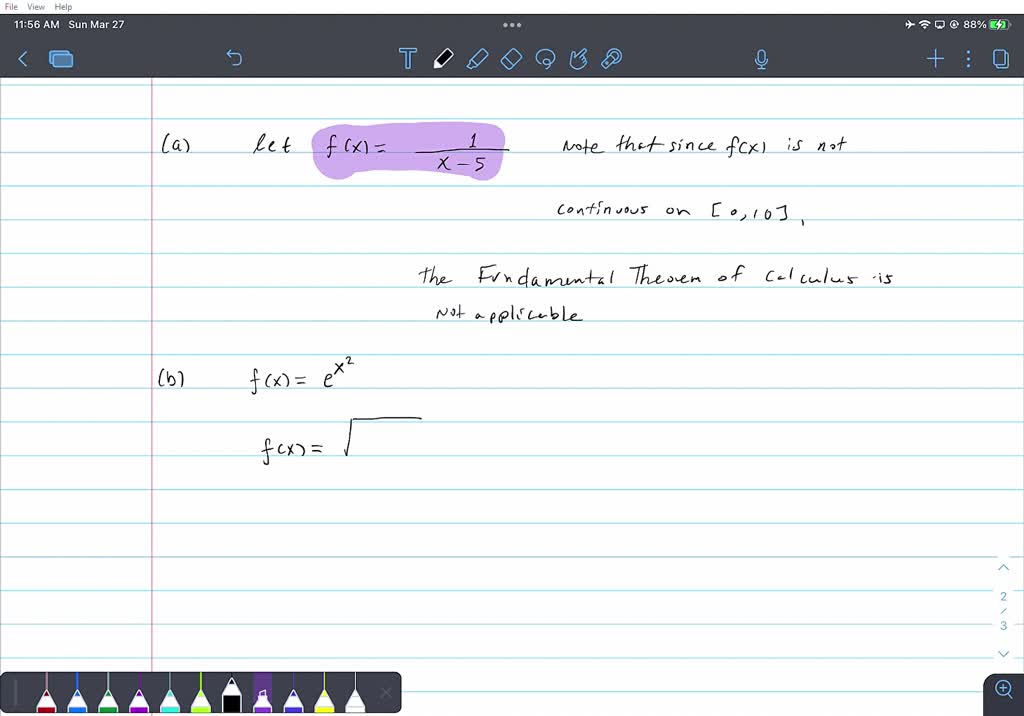 File View Help
11:56 AM Sun Mar 27 88%
T
(a) let f(x) = 1/(x - 5) Note that since f(x) is not
continuous on [0,10],
the Fundamental Theorem of Calculus is
Not applicable
(b) f(x) = e^{x^2}
f(x) = √
2
/
3